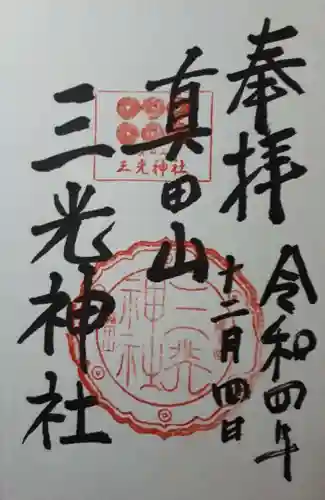 奉拝
令和四年
十二月四日
真田山
三光神社
三光神社
三光神社